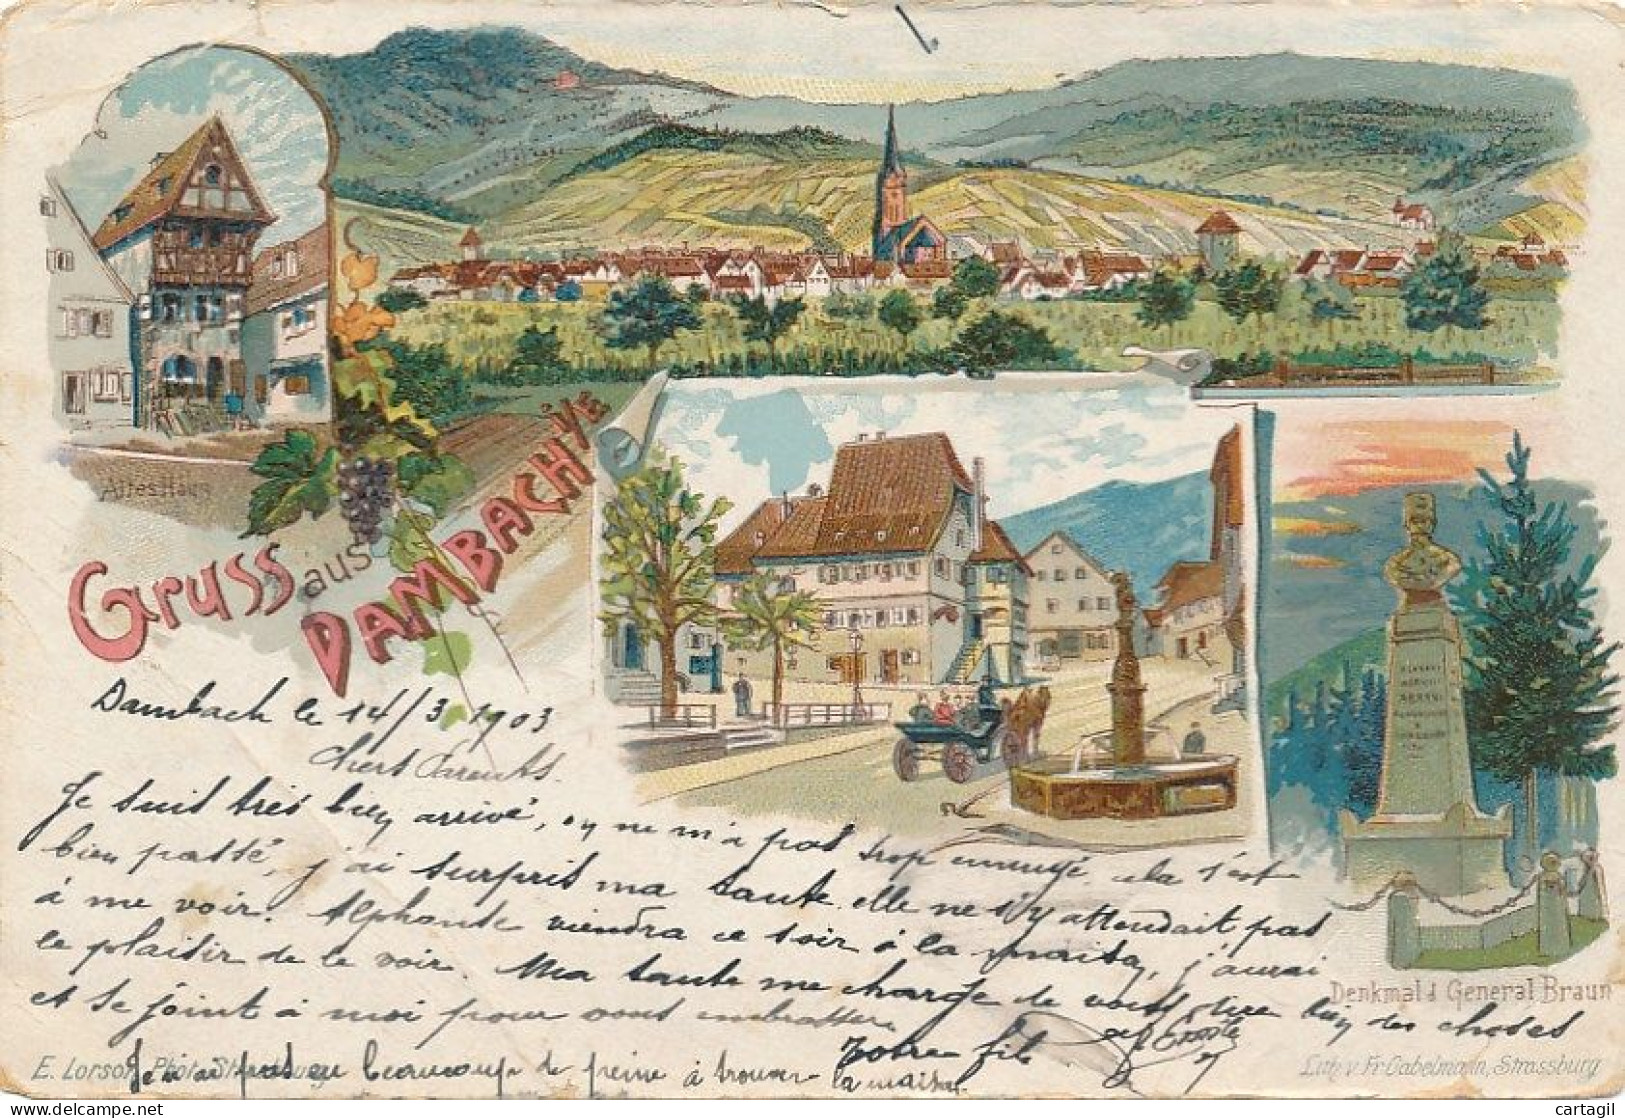 Altes Haus
Gruss aus
DAMBACH i/E
Dambach le 14/3 1903
chers Parents.
Je suis très bien arrivé, on ne m'a pas trop ennuyé. cela s'est
bien passé, j'ai surpris ma tante. elle ne s'y attendait pas
à me voir. Alphonse viendra ce soir à la maison, j'aurai
le plaisir de le voir. Ma tante me charge de vous dire bien des choses
et se joint à moi pour vous embrasser.
Votre fils
J'en ai pas eu beaucoup de peine à trouver la maison.
Denkmal d General Braun
E. Lorson, Phot. Strassburg
Lith. v. Fr. Gabelmann, Strassburg
cartagil